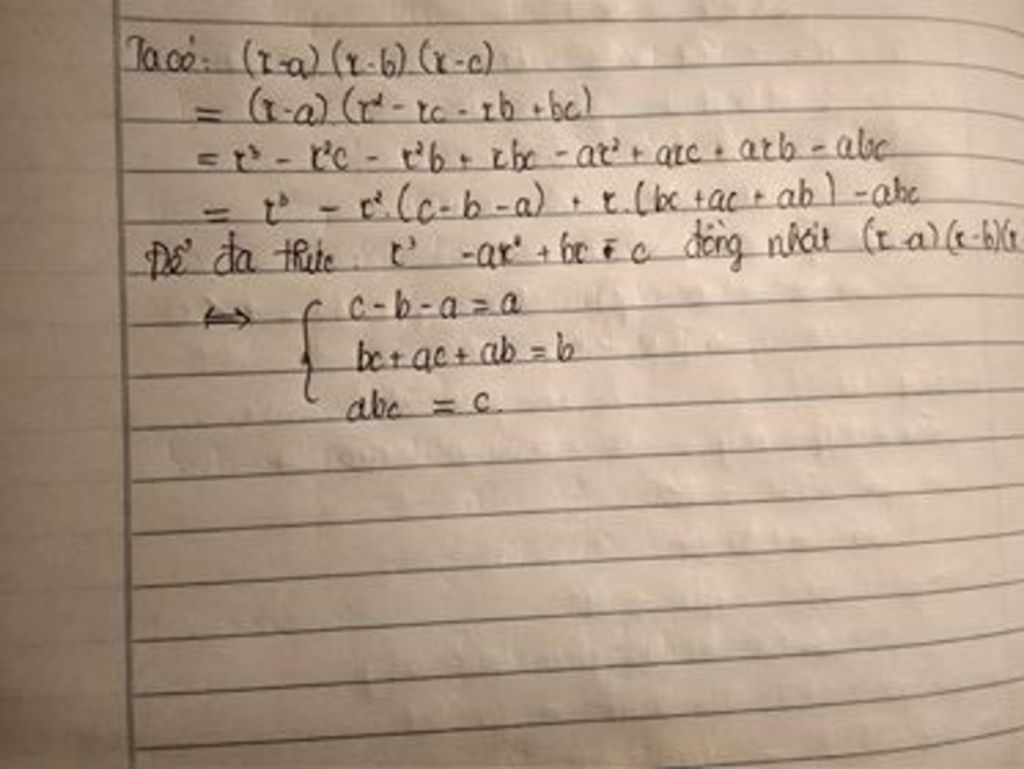 Ta có: (x-a)(x-b)(x-c)
= (x-a)(x² - xc - xb + bc)
= x³ - x²c - x²b + xbc - ax² + axc + axb - abc
= x³ - x².(c-b-a) + x.(bc+ac+ab) - abc
Để đa thức x³ -ax² + bx - c đồng nhất (x-a)(x-b)(x
⟺ { c-b-a = a
bc+ac+ab = b
abc = c.